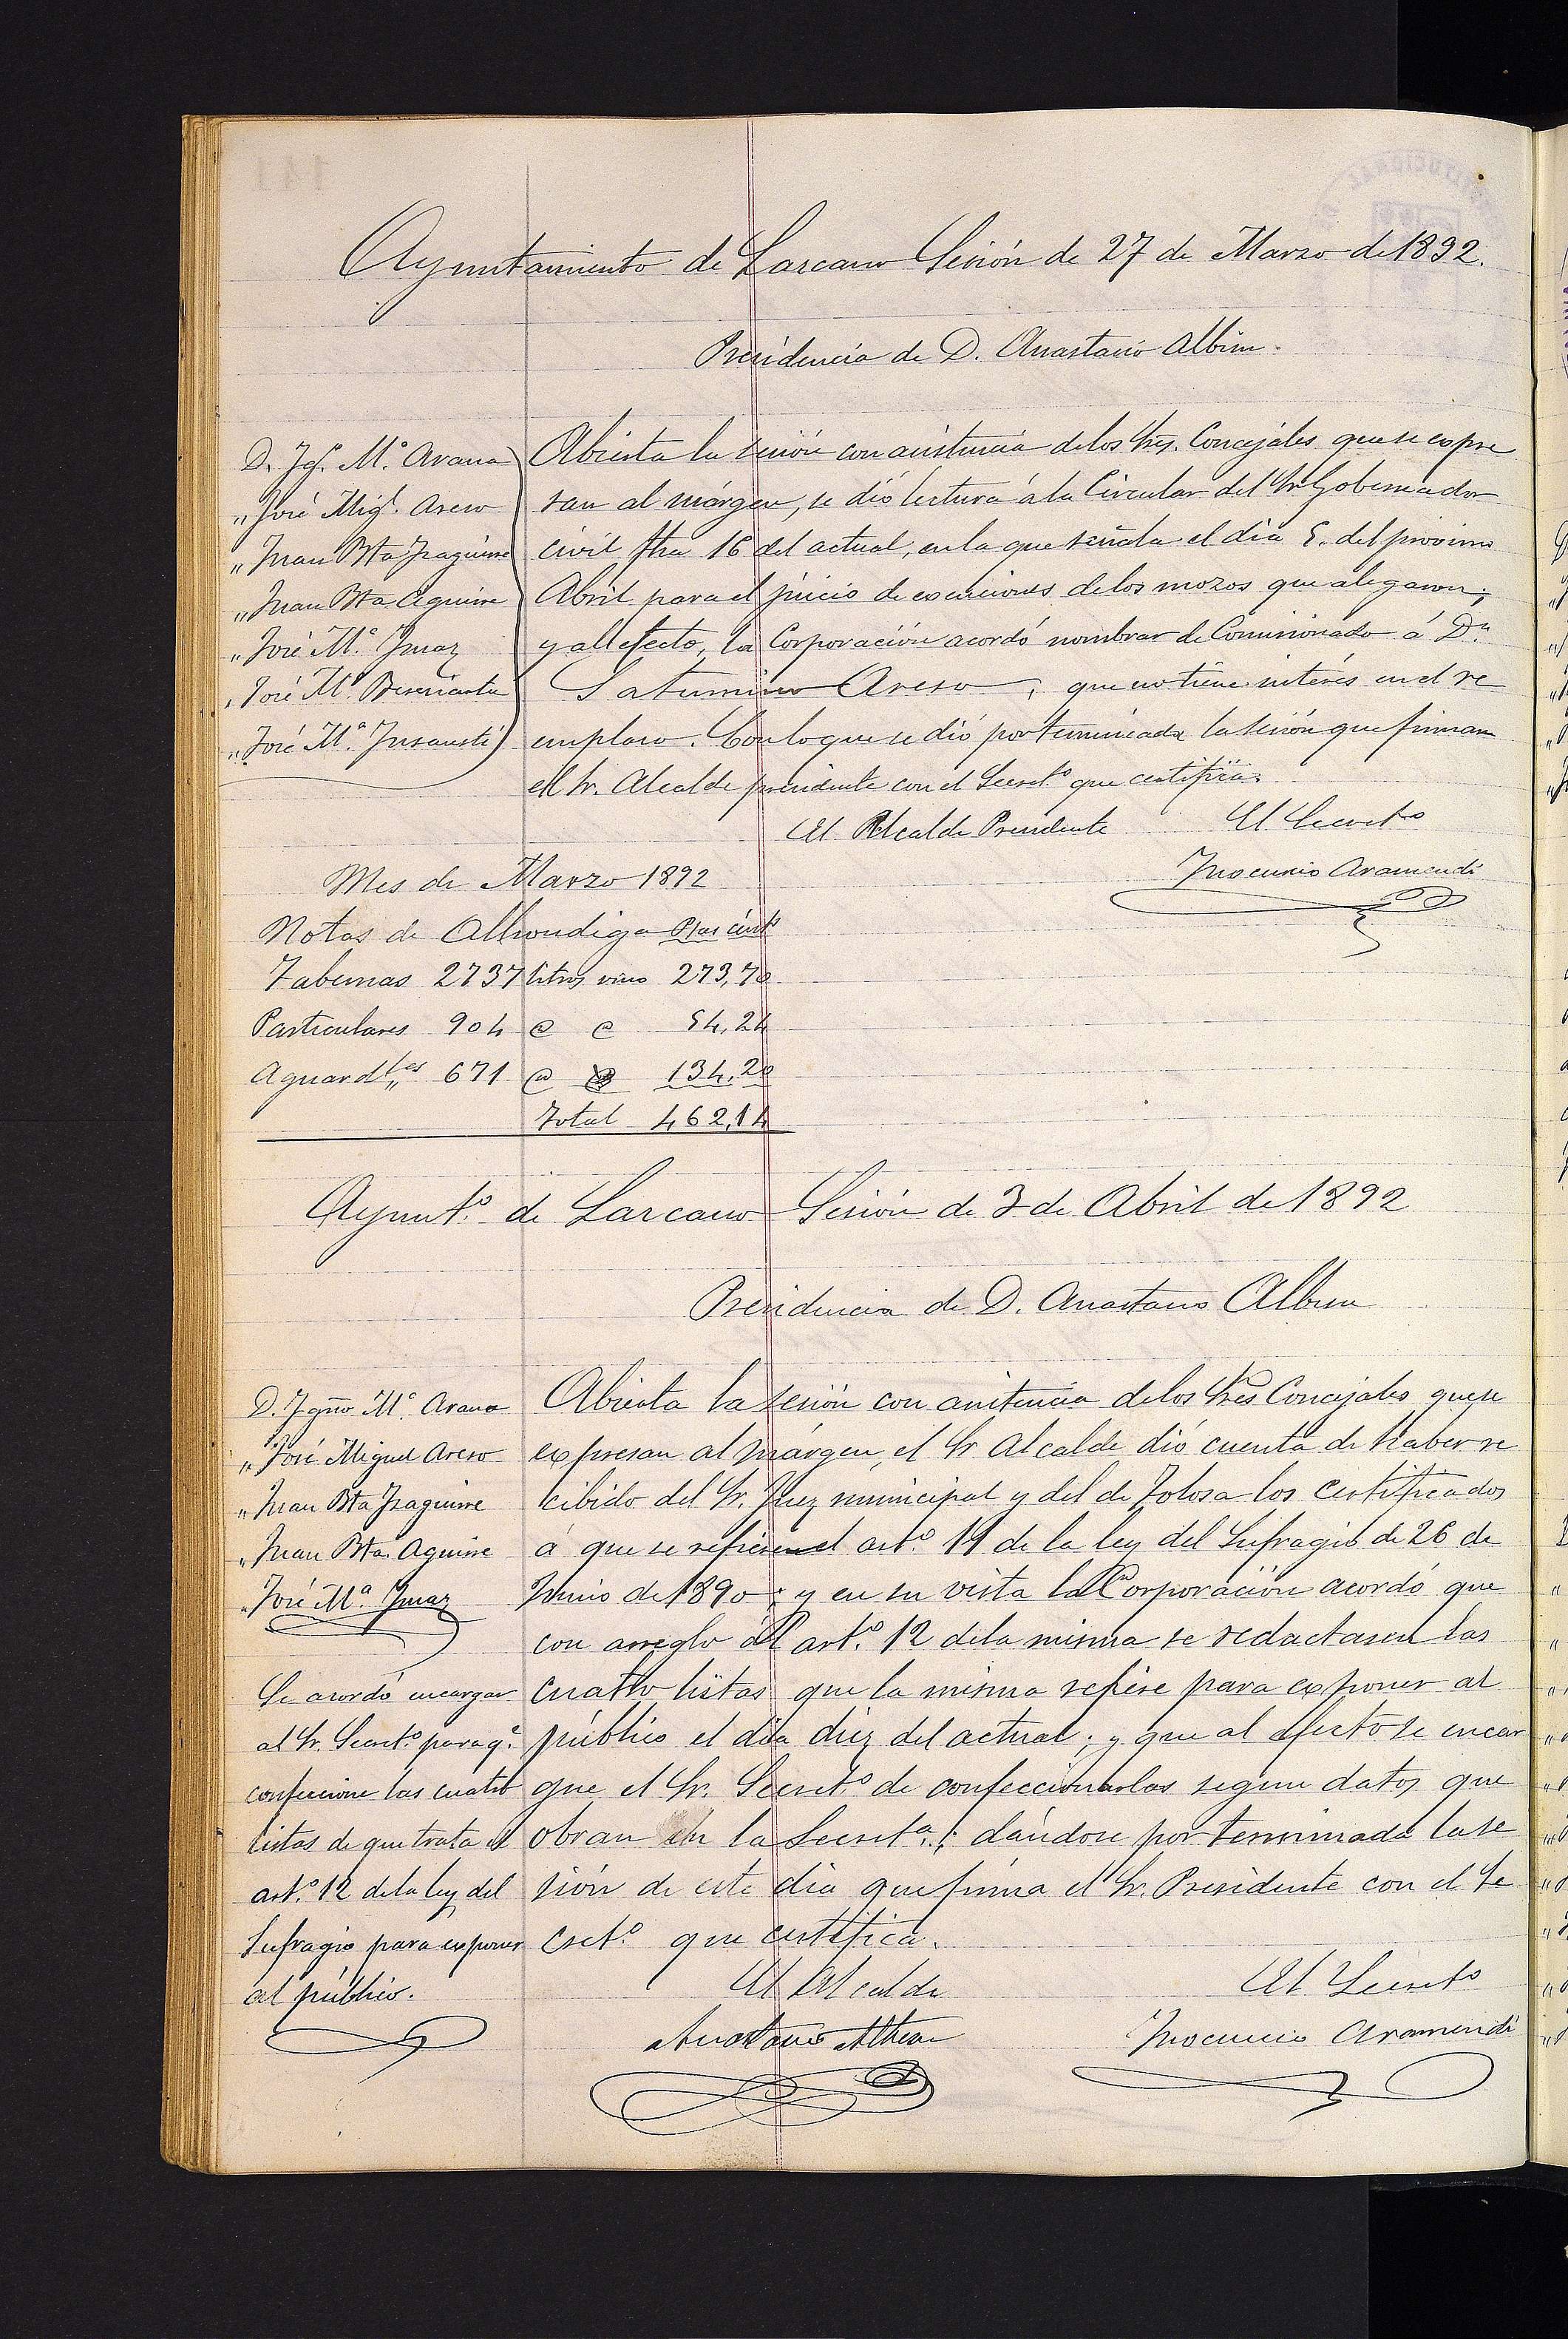 Ayuntamiento de Lazcano Sesión de 27 de Marzo de 1892.
Presidencia de D. Anastasio Albisu.
D. Ig.º M.ª Arana
" José Mig.l Areso
" Juan Bta Izaguirre
" Juan Bta Aguirre
" José M.ª Imaz
" José M.ª
" José M.ª Insausti
Abierta la sesión con asistencia de los Sres. Concejales que se expre
san al márgen, se dió lectura á la Circular del Sr Gobernador
civil fha 16 del actual, en la que señala el dia 5. del próximo
Abril para el juicio de exenciones de los mozos que alegaron;
y al efecto, la Corporación acordó nombrar de Comisionado á D.n
Saturnino Areso, que no tiene interés en el re
emplazo. Con lo que se dió por terminada la sesión que firman
el Sr. Alcalde presidente con el Secret.º que certifica.
El Alcalde Presidente
El Secretº
Inocencio Aramendi
Mes de Marzo 1892
Notas de Alhondiga Ptas cénts
Tabernas 2737 litros vino 273,70
Particulares 904 @ @ 54,24
Aguard.tes 671 @ 134,20
Total 462,14
Ayunt.º de Lazcano Sesión de 3 de Abril de 1892
Presidencia de D. Anastasio Albisu
D. Ignº M.ª Arana
" José Miguel Areso
" Juan Bta Izaguirre
" Juan Bta Aguirre
" José M.ª Imaz
Se acordó encargar
al Sr. Secret.º para q.e
confeccione las cuatro
listas de que trata el
art.º 12 de la ley del
Sufragio para exponer
al público.
Abierta la sesión con asistencia de los Sres Concejales que se
expresan al márgen, el Sr Alcalde dió cuenta de haber re
cibido del Sr. Juez municipal y del de Tolosa los certificados
á que se refieren el art.º 11 de la ley del Sufragio de 26 de
Junio de 1890; y en su vista la Corporación acordó que
con arreglo al art.º 12 de la misma se redactasen las
cuatro listas que la misma refiere para exponer al
público el dia diez del actual; y que al efecto se encar
gue el Sr. Secret.º de confeccionarlas segun datos que
obran en la Secret.ª; dándose por terminada la se
sión de este dia que firma el Sr. Presidente con el Se
cret.º que certifica.
El Alcalde
Anastasio Albisu
El Secretº
Inocencio Aramendi